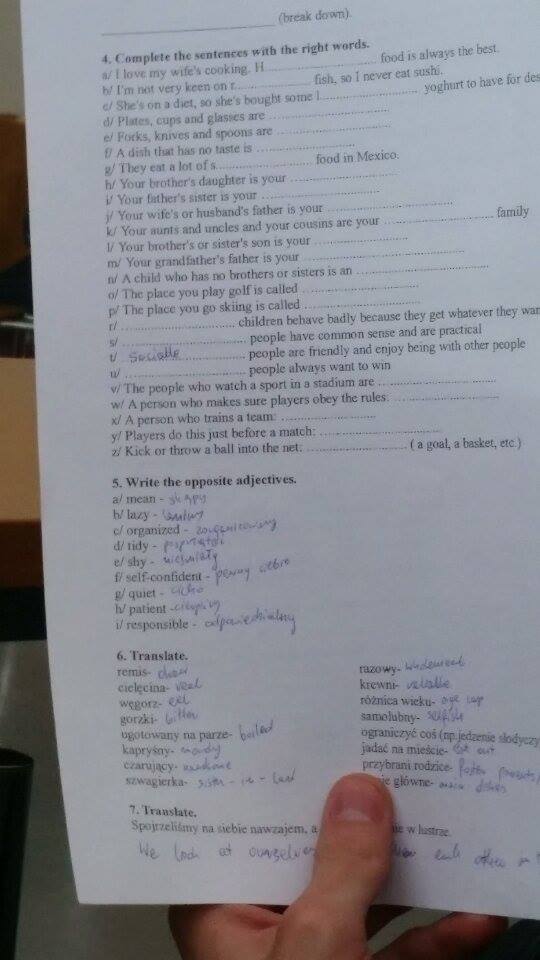 (break down).
4. Complete the sentences with the right words.
a/ I love my wife's cooking. H.................... food is always the best.
b/ I'm not very keen on r.................... fish, so I never eat sushi.
c/ She's on a diet, so she's bought some l.................... yoghurt to have for des
d/ Plates, cups and glasses are ....................
e/ Forks, knives and spoons are ....................
f/ A dish that has no taste is ....................
g/ They eat a lot of s.................... food in Mexico.
h/ Your brother's daughter is your ....................
i/ Your father's sister is your ....................
j/ Your wife's or husband's father is your ....................
k/ Your aunts and uncles and your cousins are your .................... family
l/ Your brother's or sister's son is your ....................
m/ Your grandfather's father is your ....................
n/ A child who has no brothers or sisters is an ....................
o/ The place you play golf is called ....................
p/ The place you go skiing is called ....................
r/ .................... children behave badly because they get whatever they wan
s/ .................... people have common sense and are practical
t/ Sociable .................... people are friendly and enjoy being with other people
u/ .................... people always want to win
v/ The people who watch a sport in a stadium are ....................
w/ A person who makes sure players obey the rules: ....................
x/ A person who trains a team: ....................
y/ Players do this just before a match: ....................
z/ Kick or throw a ball into the net: .................... ( a goal, a basket, etc.)
5. Write the opposite adjectives.
a/ mean - skąpy
b/ lazy - leniwy
c/ organized - zorganizowany
d/ tidy -
e/ shy - nieśmiały
f/ self-confident - pewny siebie
g/ quiet - cicho
h/ patient - cierpliwy
i/ responsible - odpowiedzialny
6. Translate.
remis- draw
cielęcina- veal
węgorz- eel
gorzki- bitter
ugotowany na parze- boiled
kapryśny- moody
czarujący-
szwagierka- sister - in - law
razowy- wholemeal
krewni-
różnica wieku- age gap
samolubny- selfish
ograniczyć coś (np.jedzenie słodyczy
jadać na mieście- eat out
przybrani rodzice- foster parents
ie główne- main dishes
7. Translate.
Spojrzeliśmy na siebie nawzajem, a ie w lustrze.
We look at ourselves each other